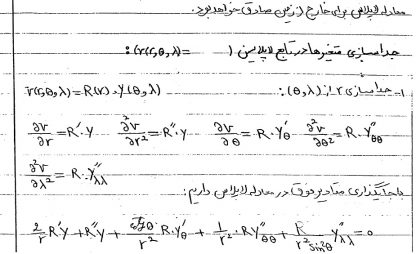 معادله لاپلاس برای خارج از زمین صادق خواهد بود.
جداسازی متغیرها در تابع لاپلاسین ( v(r,θ,λ)= :
۱- جداسازی r از (θ,λ): v(r,θ,λ)=R(r).Y(θ,λ)
∂v/∂r = R'.Y ∂²v/∂r² = R''.Y ∂v/∂θ = R.Y'θ ∂²v/∂θ² = R.Y''θθ
∂²v/∂λ² = R.Y''λλ
با جایگذاری مقادیر فوق در معادله لاپلاس داریم:
2/r R'Y + R''Y + θ/r² R.Y'θ + 1/r² . RY''θθ + R/r²sin²θ Y''λλ = 0